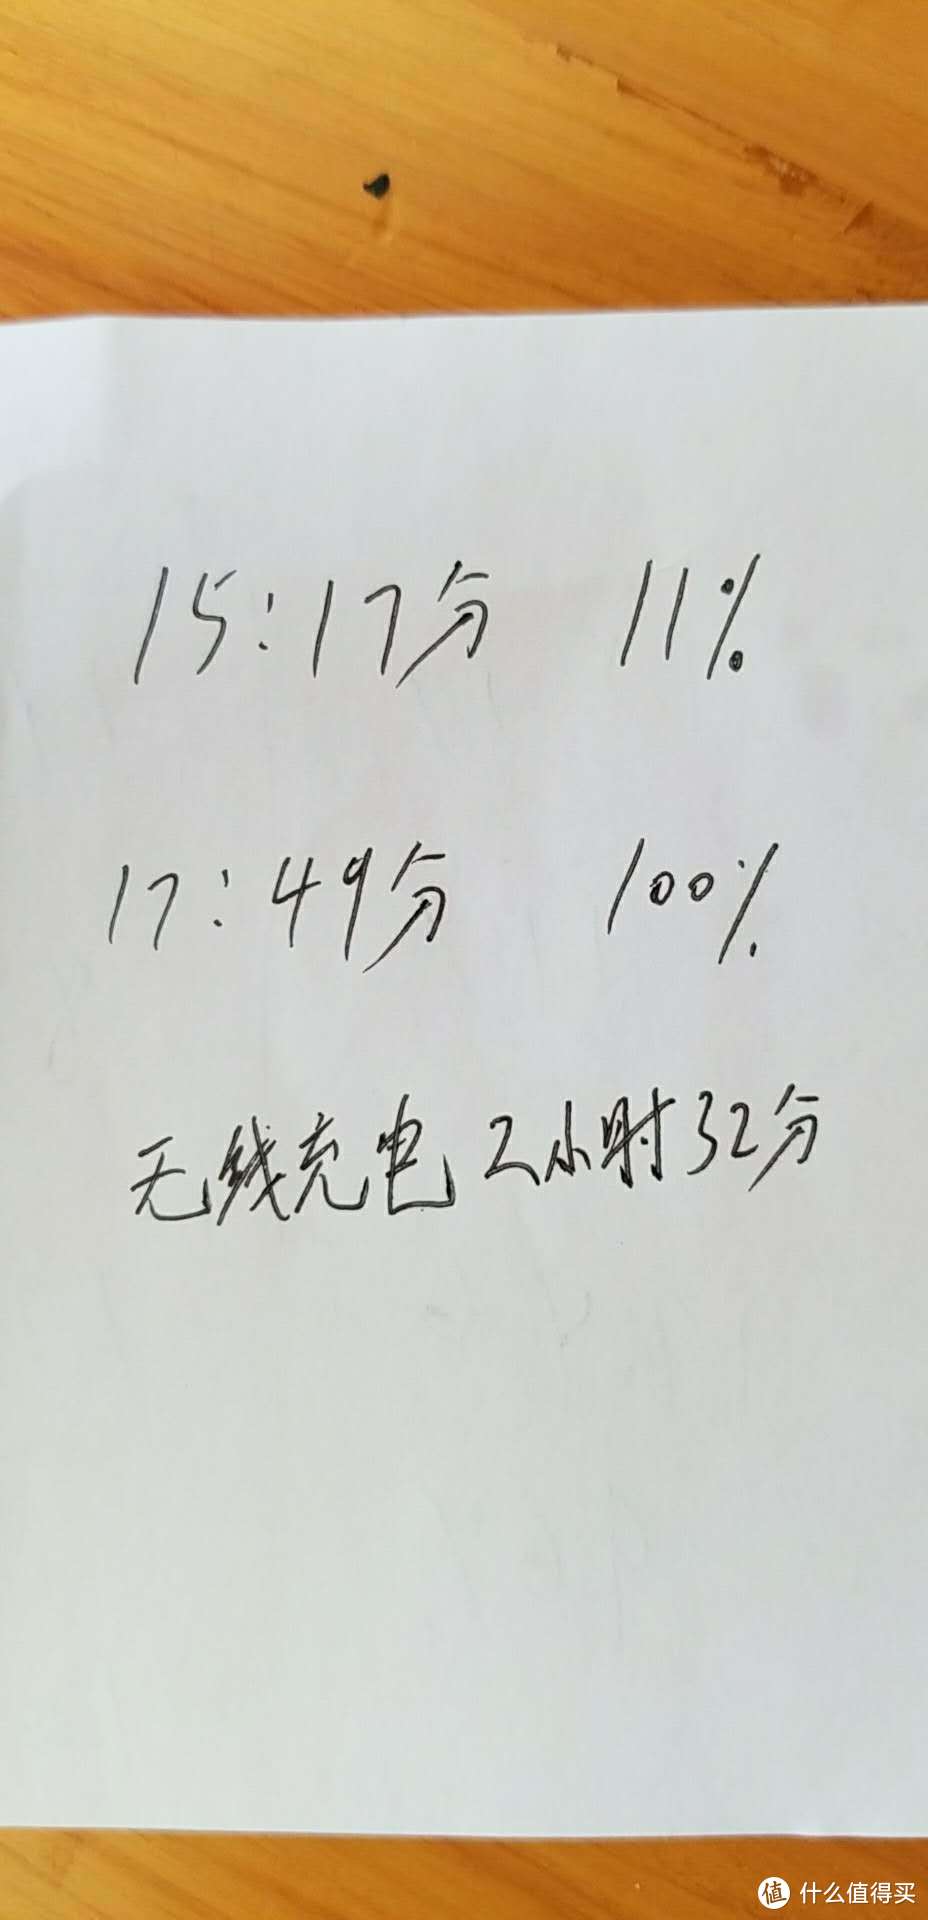 15:17分 11%
17:49分 100%
无线充电2小时32分
值 什么值得买